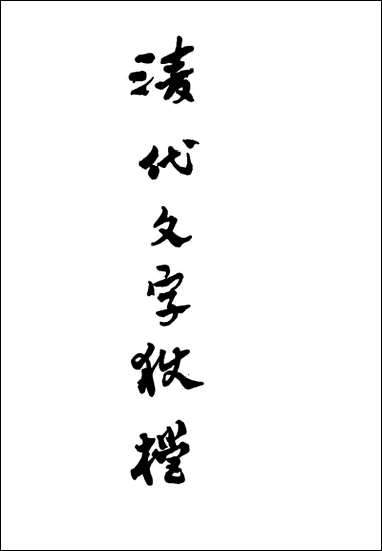 清代文字狱檔